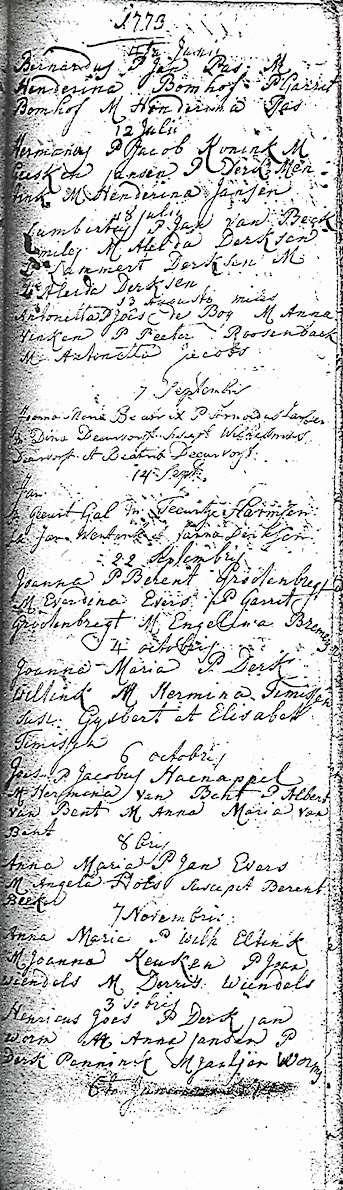 1773
4ta Junii
Bernardus P Jan Pas M
Henderina Bomhof P Garrit
Bomhof M Henderina Pas
12 Julii
Hermanus P Jacob Konink M
Geesken Jansen P Derk Men
tink M Henderina Jansen
18 julij
Lambertus P Jan van Beek
M Aleida Derksen
Lammert Derksen M
Aleida Derksen
13 Augusti
Antonetta P Joes de Boy M Anna
Vinken P Peeter Roosenbaek
M Antonetta jacobs
7 Septembris
Joanna Maria Beatrix P Arnoldus Jansen
M Dina Deurvorst Suscept Wilhelmus
Deurvorst et Beatrix Deurvorst
14 Sept.
Jan
P Geurt Gal M Teuntje Harmsen
Jan Wentink et Janna Derksen
22 Septembris
Joanna P Berent Grootenbregt
M Everdina Evers P Garrit
Grootenbregt M Engelina Bremer
4 octobris
Joanna Maria P Derk
Wiltink M Hermina Timissen
Susc. Gysbert et Elisabet
Timissen
6 octobris
Joes P Jacobus Haenappel
M Hermina van Bent P Albert
van Bent M Anna Maria van
Bent
8 bris
Anna Maria P Jan Evers
M Angela Hoes Suscepit Berent
Beeker
7 Novembris
Anna Maria P Wilh Eltink
M Joanna Keuken P Joan
Wiendels M Derris Wiendels
3 xbris
Henricus Joes P Derk jan
Worm M Anna Jansen P
Derk Pannink M janljan Worms
6ta